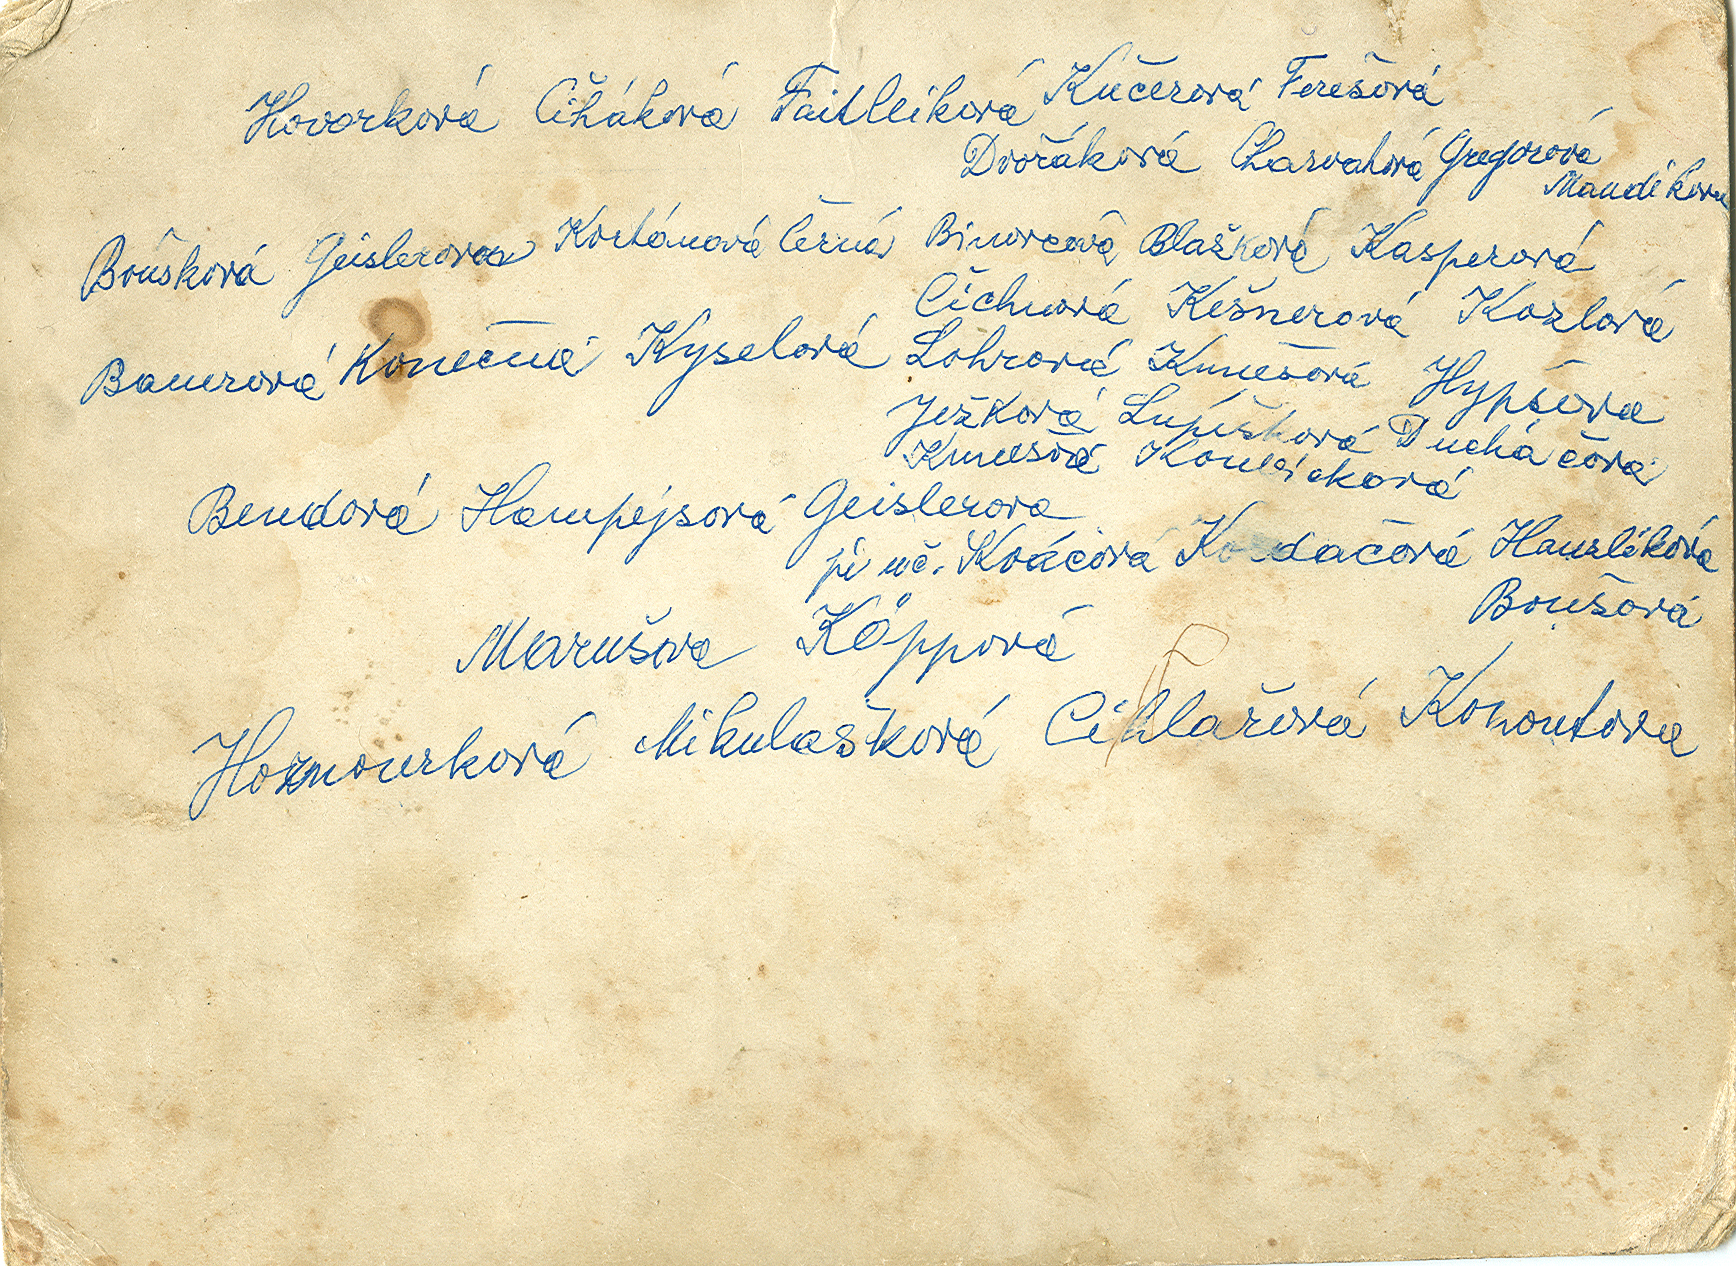 Hovorková Čiháková Faitleiková Kučerová Ferešová
Dvořáková Charvatová Gregorová
Maudikova
Boušková Geislerova Kortánová Černá Binovcová Blašková Kasperová
Čichnová Kešnerová Kozlová
Bauerová Konečná Kyselová Lohrová Kmešová Hypšova
Ježková Lupíšková Ducháčová
Kmešová
Bendová Hampejsová Geislerova
pí uč. Kváčová Kordačová Hauzlíková
Boušová
Marušova Köppová
Hormourková Mikulašková Cihlařová Kohoutova